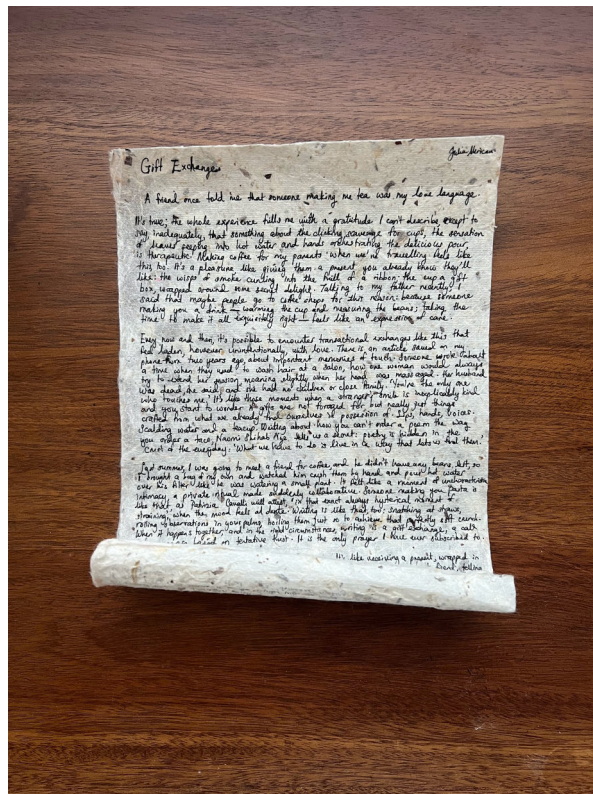 Gift Exchange
Julia Merican
A friend once told me that someone making me tea was my love language.
It's true; the whole experience fills me with a gratitude I can't describe except to
say, inadequately, that something about the clicking, scavenge for cups, the sensation
of leaves seeping into hot water and hands orchestrating the delicious pour,
is therapeutic. Making coffee for my parents when we're travelling feels like
this, too. It's a pleasure like giving them a present you already know they'll
like: the wisps of smoke curling into the frills of a ribbon, the cup a gift
box wrapped around some secret delight. Talking to my father recently, I
said that maybe people go to coffee shops for this reason: because someone
making you a drink — warming the cup and measuring the beans; taking the
time to make it all exquisitely right — feels like an expression of care.
Every now and then, it's possible to encounter transactional exchanges like this that
feel laden, however unintentionally, with love. There is an article saved on my
phone from two years ago about important memories of touch. Someone wrote about
a time when they used to wash hair at a salon, how one woman would always
try to extend her session, moaning slightly when her head was massaged. Her husband
was dead, she said, and she had no children or close family. 'You're the only one
who touches me.' It's like those moments when a stranger's smile is inexplicably kind
and you start to wonder if gifts are not foraged for but really just things
crafted from what we already find ourselves in possession of. Lips, hands, voices.
Scalding water and a teacup. Writing about how you can't order a poem the way
you order a taco, Naomi Shihab Nye tells us a secret: poetry is hidden in the
carol of the everyday. 'What we have to do is live in a way that lets us find them.'
Last summer, I was going to meet a friend for coffee, and he didn't have any beans left, so
I brought a bag of my own and watched him crush them by hand, and pour hot water
over his filter like he was watering a small plant. It felt like a moment of uncharacteristic
intimacy, a private ritual made suddenly collaborative. Someone making you pasta is
like this, as Patrizia Cavalli will attest, 'in that exact always hysterical moment of
straining', when the mood feels al dente. Writing is like that, too: snatching at straws,
rolling observations in your palms, boiling them just so to achieve that perfectly soft crunch.
When it happens together, and in the right circumstances, writing is a gift exchange, a
based on tentative trust. It is the only prayer I have ever subscribed to.
like receiving a present, wrapped in